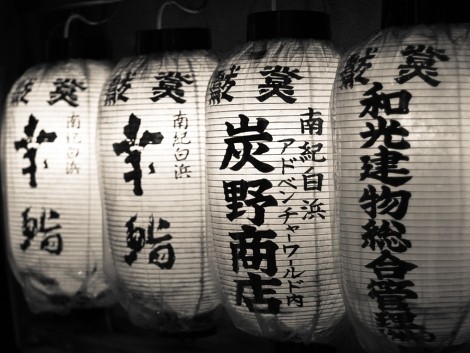 和光建物総合管理
南紀白浜
アドベンチャーワールド内
炭野商店
南紀白浜
幸鮨
南紀白浜
幸鮨